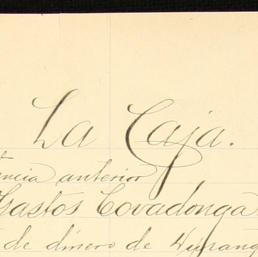 La Caja.
encia anterior
Gastos Covadonga
de dinero de